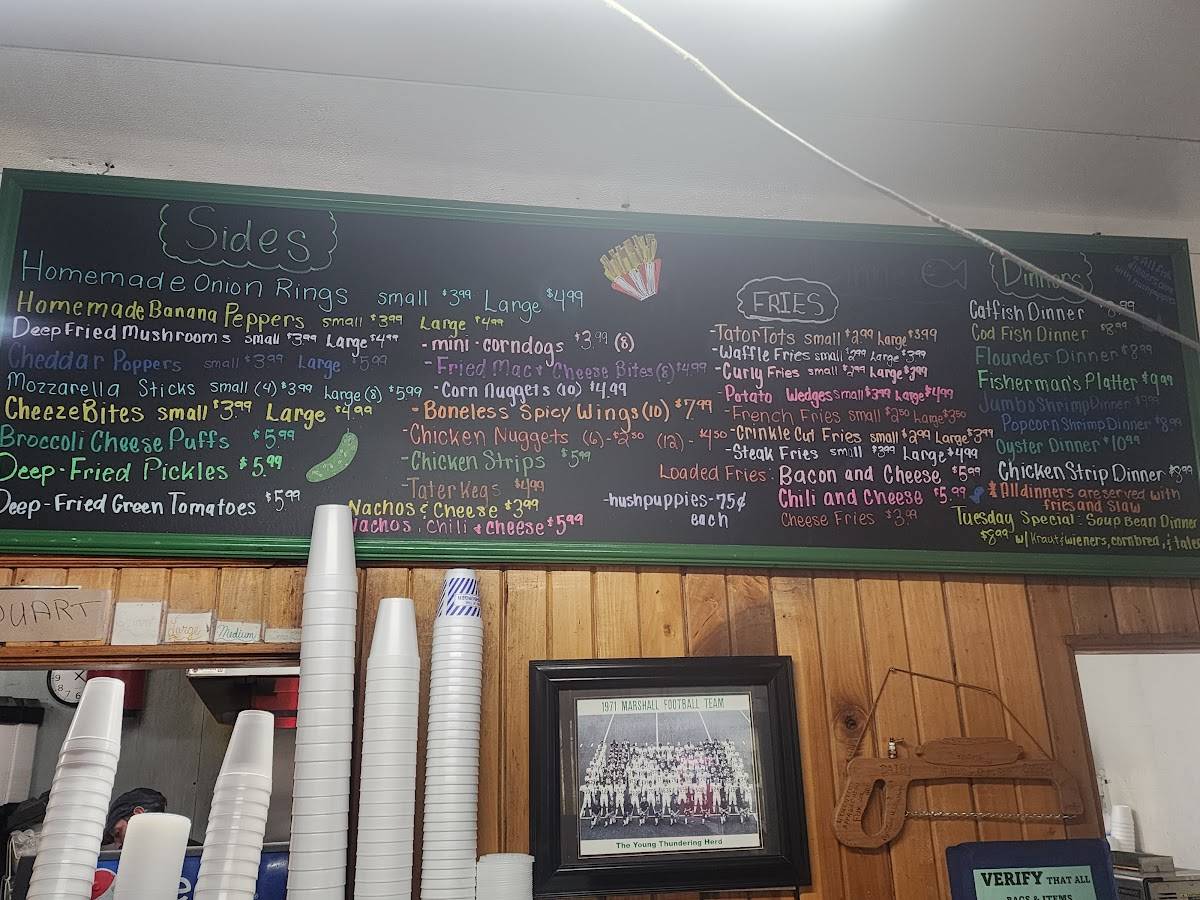 Sides
Homemade Onion Rings small $3.99 Large $4.99
Homemade Banana Peppers small $3.99 Large $4.99
Deep Fried Mushrooms small $3.99 Large $4.99
Cheddar Poppers small $3.99 Large $5.99
Mozzarella Sticks small (4) $3.99 Large (8) $5.99
CheezeBites small $3.99 Large $4.99
Broccoli Cheese Puffs $5.99
Deep-Fried Pickles $5.99
Deep-Fried Green Tomatoes $5.99
-mini-corndogs $3.99 (8)
-Fried Mac & Cheese Bites (8) $4.99
-Corn Nuggets (10) $4.99
-Boneless Spicy Wings (10) $7.99
-Chicken Nuggets (6)-$2.50 (12)-$4.50
-Chicken Strips $5.99
-Tater Kegs $4.99
Nachos & Cheese $3.99
Nachos, Chili & Cheese $5.99
FRIES
-Tator Tots small $2.99 Large $3.99
-Waffle Fries small $2.99 Large $3.99
-Curly Fries small $2.99 Large $3.99
-Potato Wedges small $3.99 Large $4.99
-French Fries small $2.50 Large $3.50
-Crinkle Cut Fries small $2.99 Large $3.99
-Steak Fries small $3.99 Large $4.99
Loaded Fries: Bacon and Cheese $5.99
Chili and Cheese $5.99
Cheese Fries $3.99
-hushpuppies-75¢
each
Dinners
All fish
dinners come
with hushpuppies
Catfish Dinner 8.99
Cod Fish Dinner $8.99
Flounder Dinner $8.99
Fisherman's Platter $9.99
Jumbo Shrimp Dinner $9.99
Popcorn Shrimp Dinner $8.99
Oyster Dinner $10.99
Chicken Strip Dinner
*All dinners are served with
fries and slaw
Tuesday Special: Soup Bean Dinner
$8.99 w/ Kraut & wieners, cornbread, & tater
QUART
Large
Medium
1971 MARSHALL FOOTBALL TEAM
The Young Thundering Herd
VERIFY THAT ALL
BAGS & ITEMS